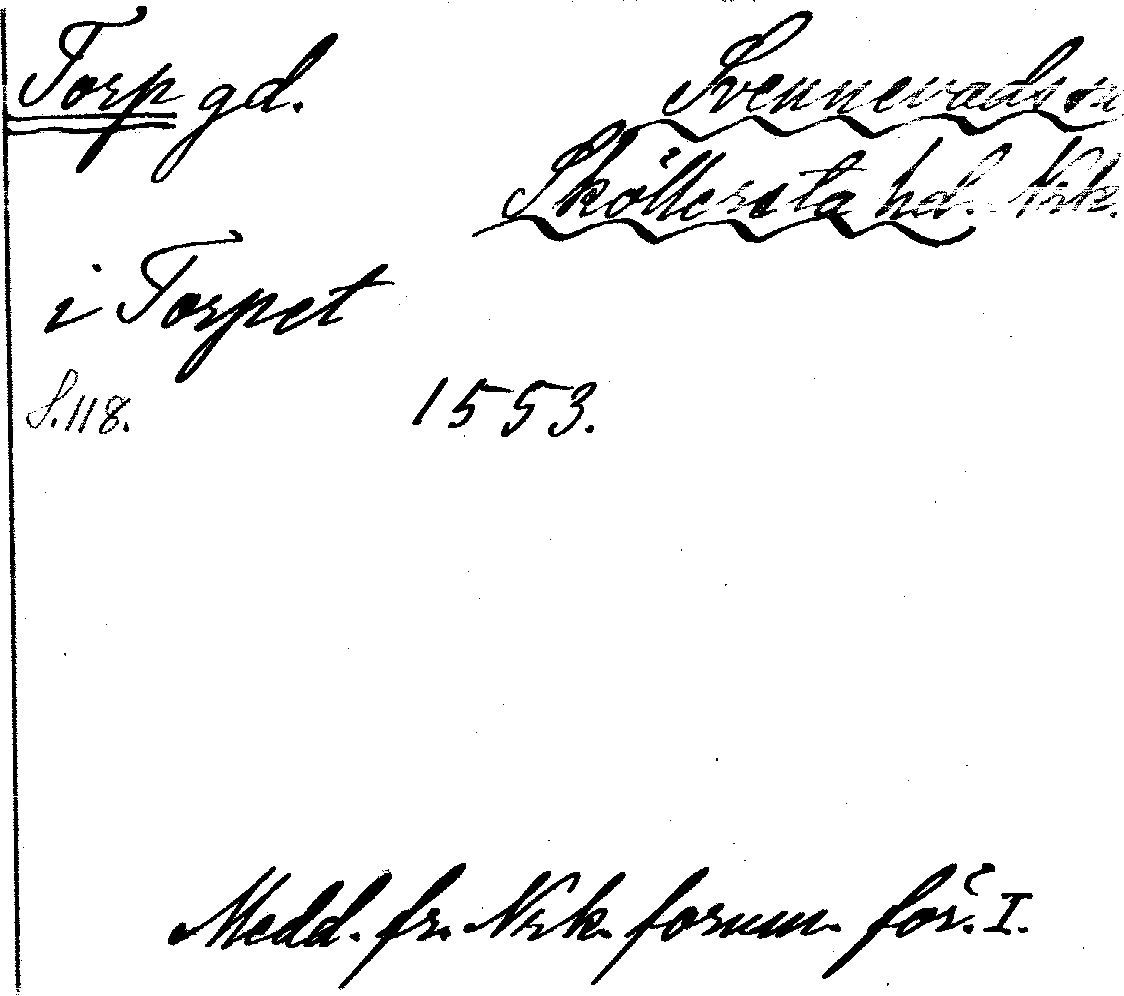 Torp gd. Svennevads sn
Sköllersta hd. Nrk.
i Torpet
S. 118. 1553.
Medd. fr. Nrk. fornm. för. I.